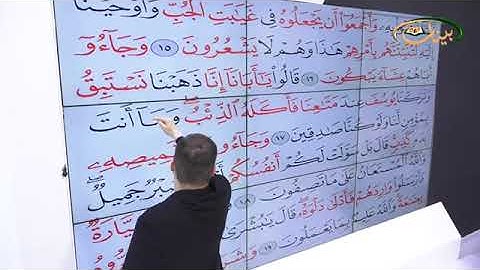 بِهِۦ وَأَجْمَعُوٓا۟ أَن يَجْعَلُوهُ فِى غَيَٰبَتِ ٱلْجُبِّ وَأَوْحَيْنَآ
إِلَيْهِ لَتُنَبِّئَنَّهُم بِأَمْرِهِمْ هَٰذَا وَهُمْ لَا يَشْعُرُونَ ١٥ وَجَآءُوٓ
أَبَاهُمْ عِشَآءً يَبْكُونَ ١٦ قَالُوا۟ يَٰٓأَبَانَآ إِنَّا ذَهَبْنَا نَسْتَبِقُ
وَتَرَكْنَا يُوسُفَ عِندَ مَتَٰعِنَا فَأَكَلَهُ ٱلذِّئْبُ وَمَآ أَنتَ
بِمُؤْمِنٍ لَّنَا وَلَوْ كُنَّا صَٰدِقِينَ ١٧ وَجَآءُو قَمِيصِهِۦ
كَذِبٍ قَالَ بَلْ سَوَّلَتْ لَكُمْ أَنفُسُكُمْ فَصَبْرٌ جَمِيلٌ
وَٱللَّهُ ٱلْمُسْتَعَانُ عَلَىٰ مَا تَصِفُونَ ١٨ سَيَّارَةٌ
فَأَرْسَلُوا۟ وَارِدَهُمْ فَأَدْلَىٰ دَلْوَهُۥ قَالَ يَٰبُشْرَىٰ
بِضَٰعَةً وَٱللَّهُ عَلِيمٌۢ بِمَا يَعْمَلُونَ ١٩